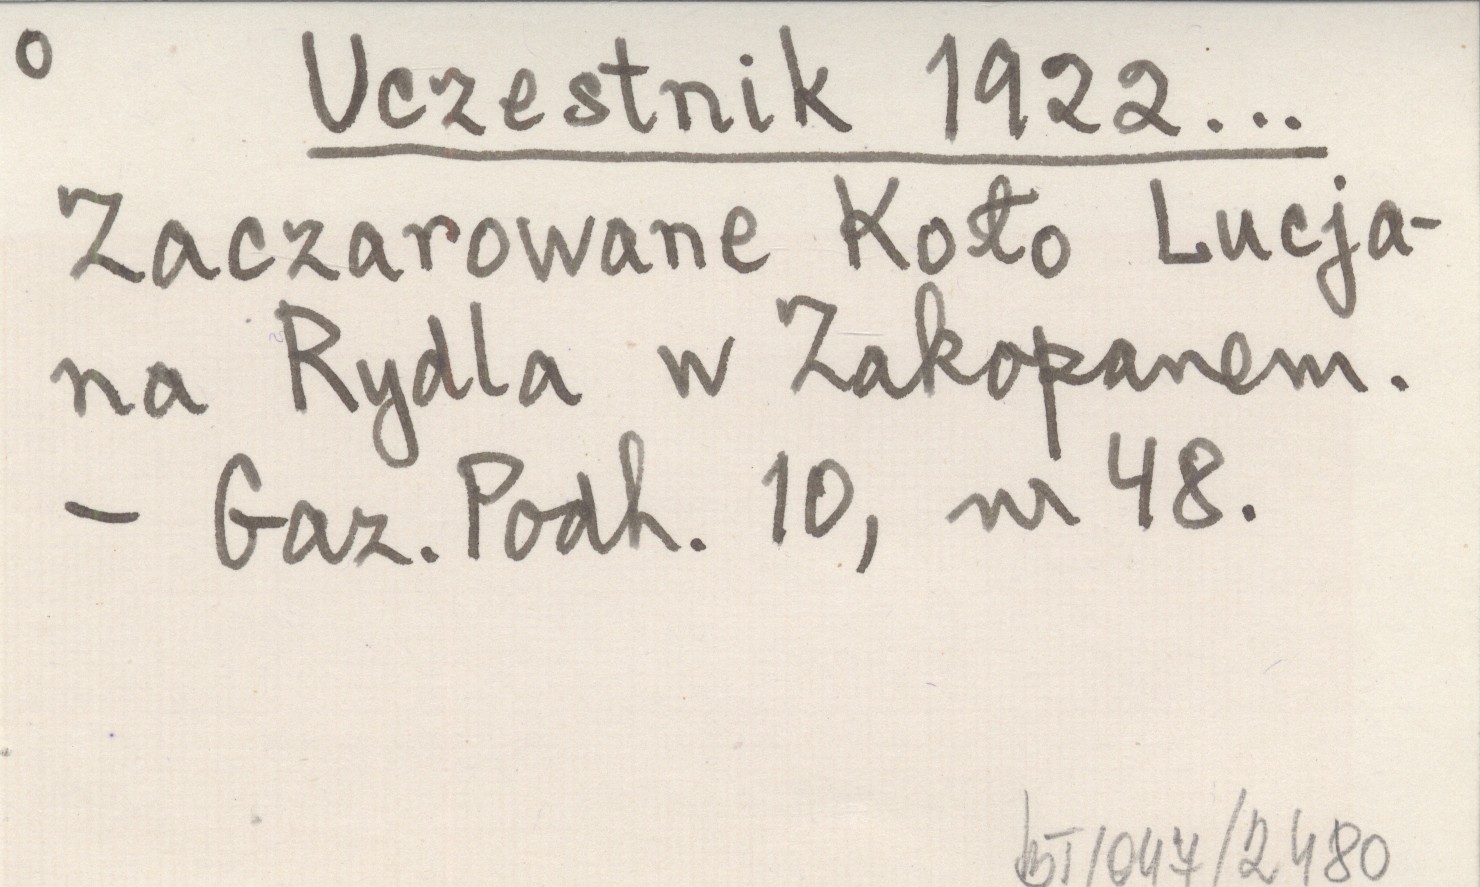 o Uczestnik 1922...
Zaczarowane Koło Lucja-
na Rydla w Zakopanem.
- Gaz. Podh. 10, nr 48.
/047/2480